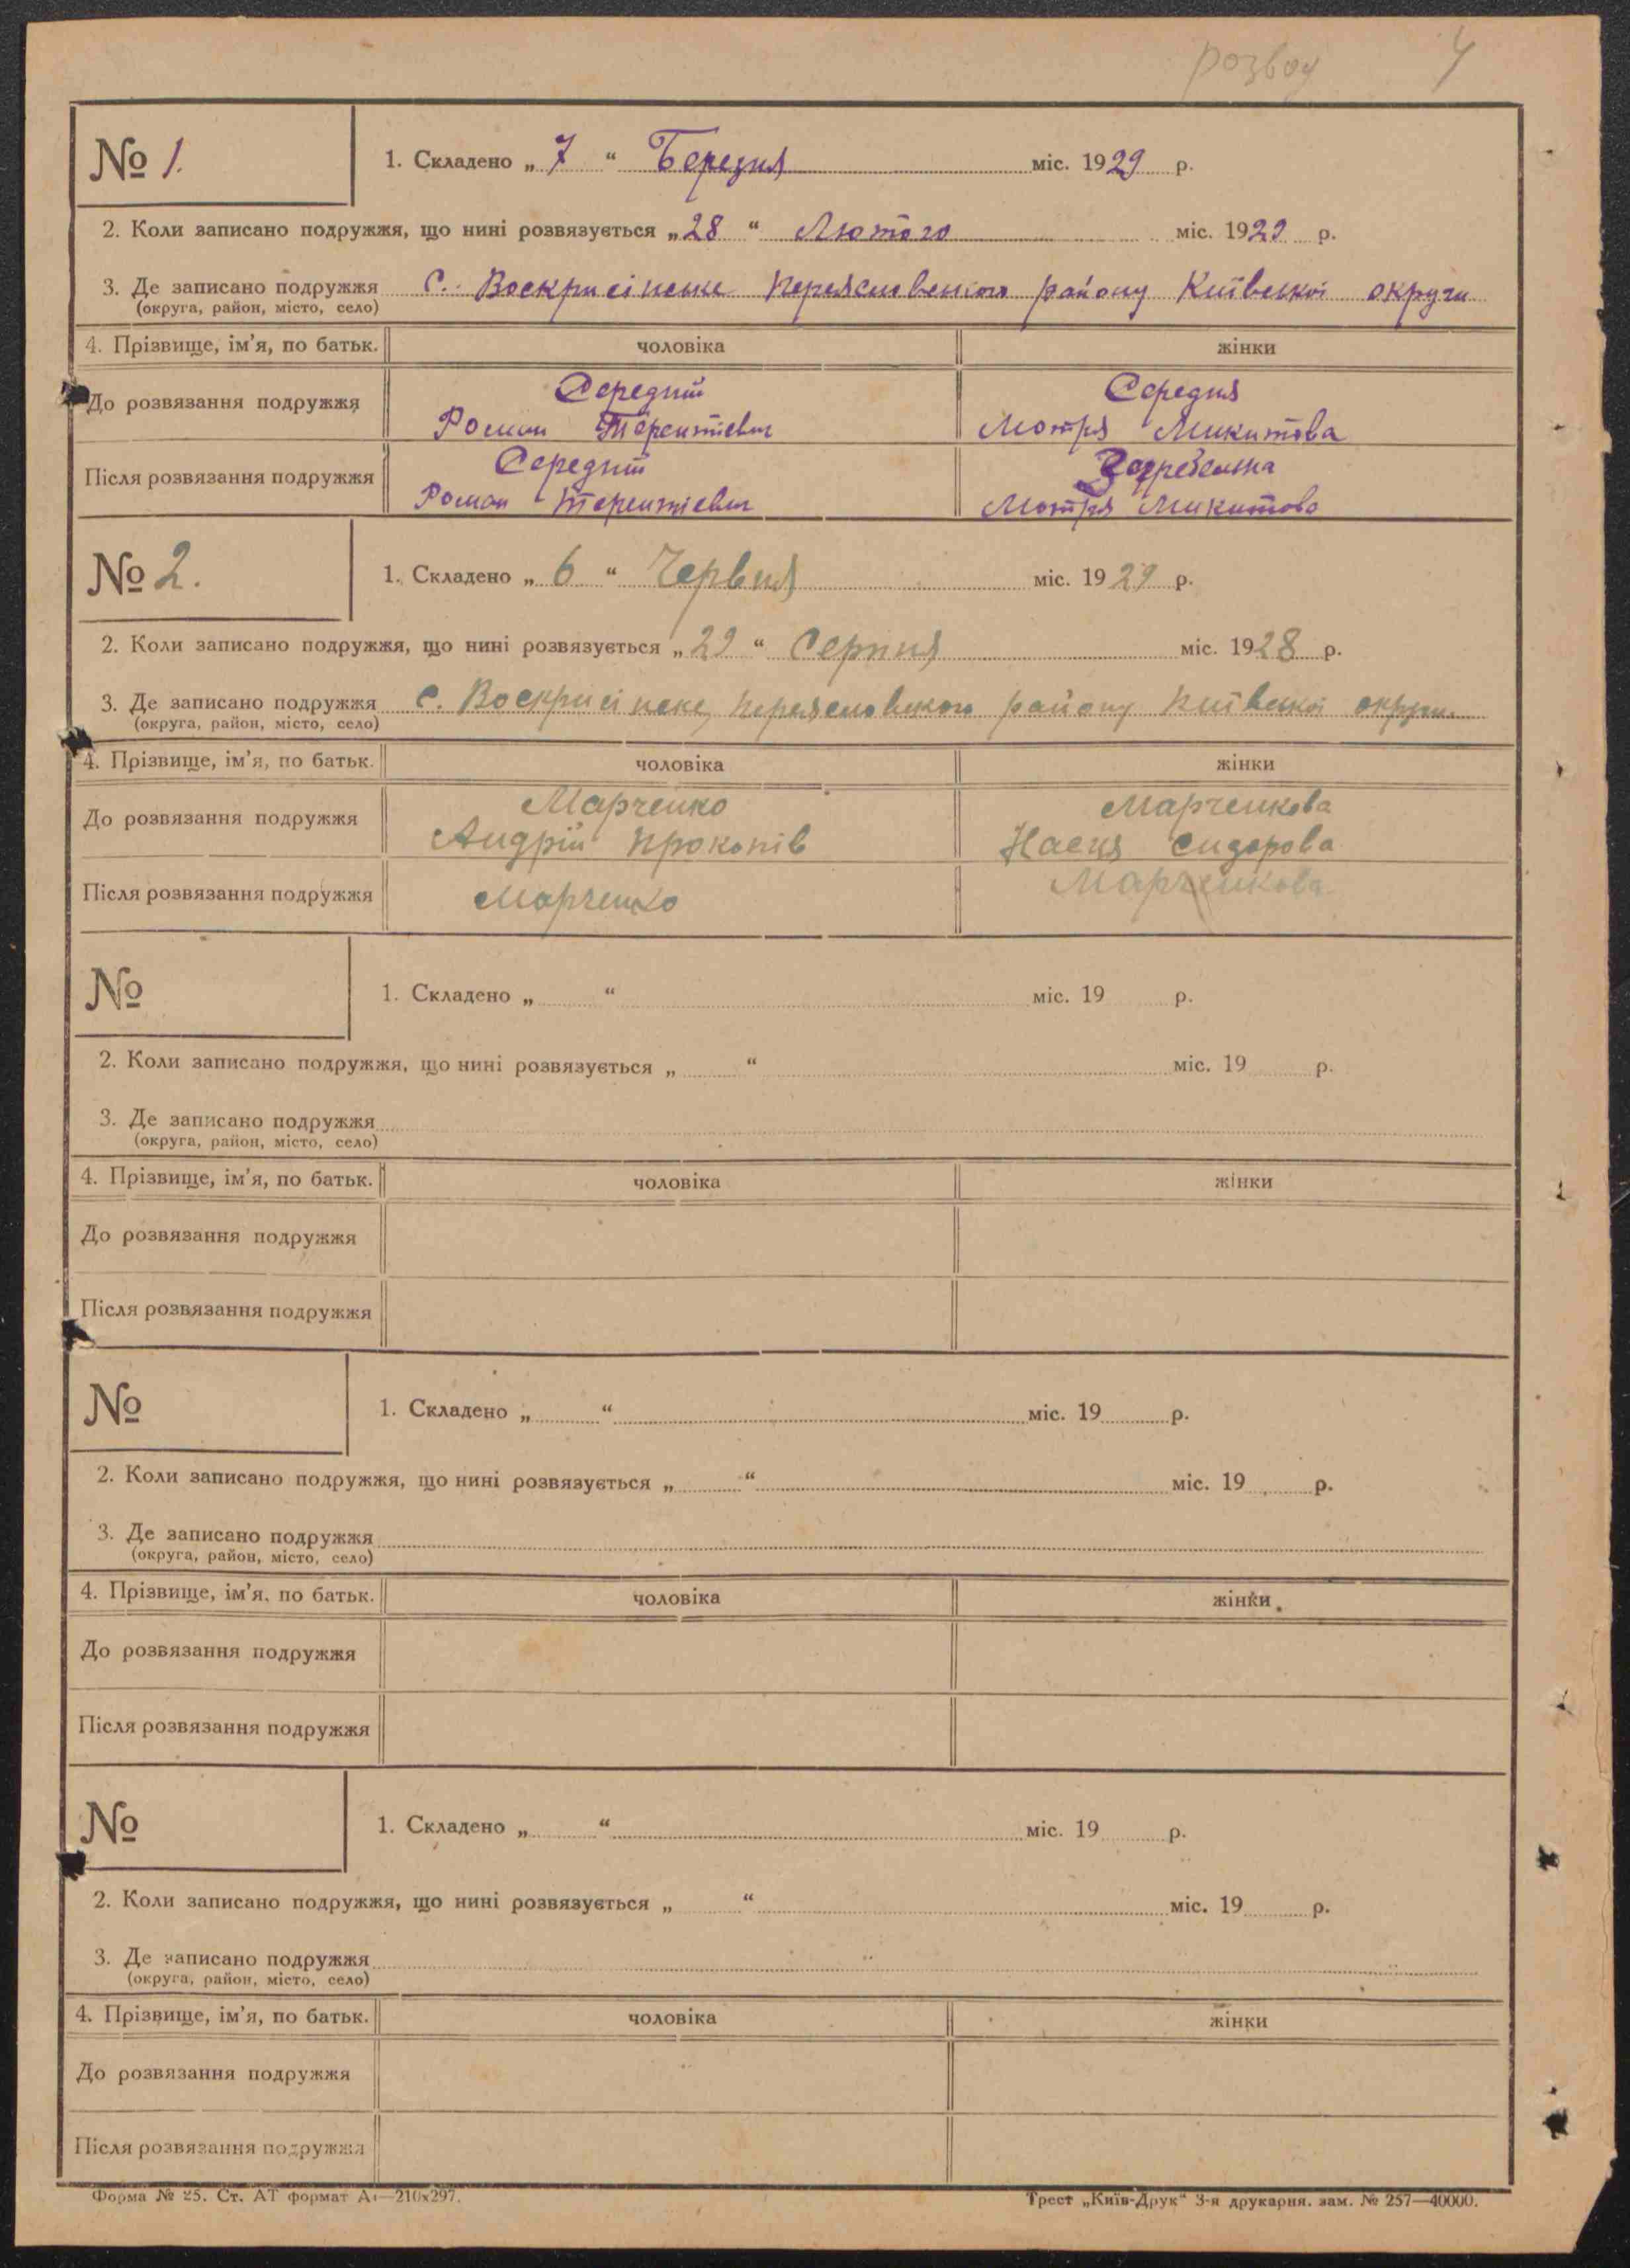 розвод 4
№ 1. 1. Складено „ 7 “ Березня міс. 1929 р.
2. Коли записано подружжя, що нині розвязується „28“ Лютого міс. 1929 р.
3. Де записано подружжя С. Воскрисінське Переяславського району Київської округи
(округа, район, місто, село)
4. Прізвище, ім’я, по батьк. чоловіка жінки
Середній Середня
До розвязання подружжя
Роман Терентієвич Мотря Микитова
Середній
Після розвязання подружжя
Роман Терентієвич Мотря Микитова
№ 2. 1. Складено „ 6 “ Червня міс. 1929 р.
2. Коли записано подружжя, що нині розвязується „29“ Серпня міс. 1928 р.
3. Де записано подружжя с. Воскрисінське, Переяславського району Київської округи.
(округа, район, місто, село)
4. Прізвище, ім’я, по батьк. чоловіка жінки
Марченко Марченкова
До розвязання подружжя
Андрій Прокопів Насця Сидорова
Після розвязання подружжя Марченко Марченкова
№ 1. Складено „ “ міс. 19 р.
2. Коли записано подружжя, що нині розвязується „ “ міс. 19 р.
3. Де записано подружжя
(округа, район, місто, село)
4. Прізвище, ім’я, по батьк. чоловіка жінки
До розвязання подружжя
Після розвязання подружжя
№ 1. Складено „ “ міс. 19 р.
2. Коли записано подружжя, що нині розвязується „ “ міс. 19 р.
3. Де записано подружжя
(округа, район, місто, село)
4. Прізвище, ім’я, по батьк. чоловіка жінки
До розвязання подружжя
Після розвязання подружжя
№ 1. Складено „ “ міс. 19 р.
2. Коли записано подружжя, що нині розвязується „ “ міс. 19 р.
3. Де записано подружжя
(округа, район, місто, село)
4. Прізвище, ім’я, по батьк. чоловіка жінки
До розвязання подружжя
Після розвязання подружжя
Форма № 25. Ст. АТ формат А4—210х297. Трест „Київ-Друк“ 3-я друкарня. зам. № 257—40000.